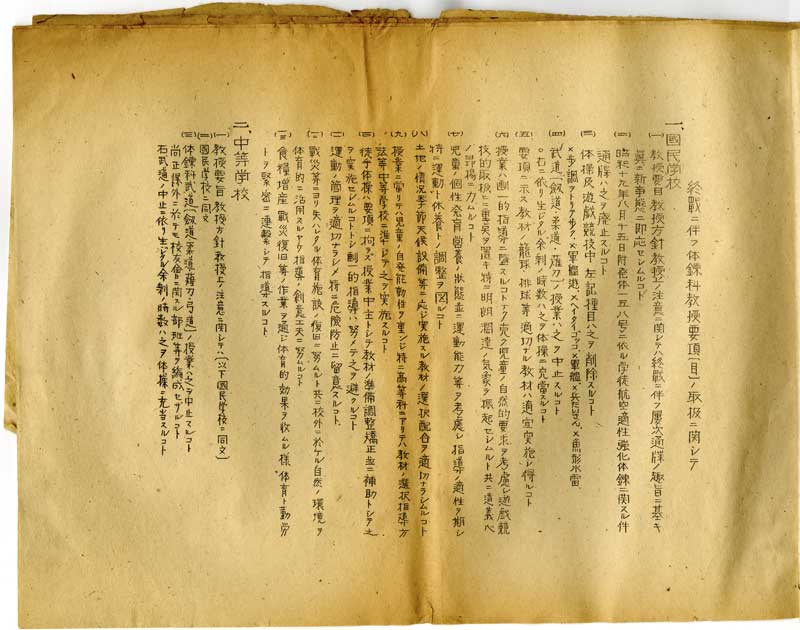 終戰ニ伴フ体錬科教授要項(目)ノ取扱ニ関シテ
一、國民学校
(一)教授要目教授方針教授上ノ注意ニ関シテハ終戰ニ伴フ屢次通牒ノ趣旨ニ基キ
真ニ新事態ニ即応セシムルコト
(二)昭和十九年八月十五日附発体一五八号ニ依ル学徒航空適性強化体錬ニ関スル件
通牒ハ之ヲ廃止スルコト
(三)体操及遊戯競技中左記種目ハ之ヲ削除スルコト
×歩調ヲトリテ歩ク×軍艦遊×ヘイタイゴッコ×軍艦×兵たいさん×魚形水雷
(四)武道(劔道、柔道、薙刀)ノ授業ハ之ヲ中止スルコト
○右ニ依リ生ジタル余剰ノ時数ハ之ヲ体操ニ充當スルコト
(五)要項ニ示ス教材ノ籠球、排球等適切ナル教材ハ適宜実施シ得ルコト
(六)授業ハ劃一的指導ニ墮スルコトナク児童ノ自然的要求ヲ考慮シ遊戯競
技的取扱ニ重奌ヲ置キ特ニ明朗濶達ノ気象ヲ振起セシムルト共ニ道義心
ノ昂揚ニ力ムルコト
(七)児童ノ個性発育営養ノ状態並ニ運動能力等ヲ考ヘ慮シ指導ノ適性ヲ期シ
特ニ運動ト休養トノ調整ヲ図ルコト
(八)土地ノ情況季節天候設備等ニ応ジ実施スル教材ノ選択配合ヲ適切ナラシムルコト
(九)授業ニ當リテハ児童ノ自発能動性ヲ重ンジ特ニ高等科ニアリテハ教材ノ選択指導方
法等中等学校ニ準ジテ之ヲ実施スルコト
(十)徒手体操ハ要項ニ拘ラズ授業中主トシテ教材ノ準備調整矯正並ニ補助トシテ之
ヲ実施セシムルコトトシ劃一的指導ハ努メテ之ヲ避クルコト
運動ノ管理ヲ適切ナラシメ特ニ危険防止ニ留意スルコト
戰災等ニヨリ失ハレタル体育施設ノ復旧ニ努ムルト共ニ校外ニ於ケル自然ノ環境ヲ
体育的ニ活用スルヤウ指導ノ創意工夫ニ努ムルコト
食糧増産、戰災復旧等ノ作業ヲ通ジ体育的効果ヲ收ムル様体育ト勤労
トヲ緊密ニ連繋シテ指導スルコト
二、中等学校
(一)教授要旨教授方針教授上ノ注意ニ関シテハ(以下國民学校ニ同文)
(二)國民学校ニ同文
(三)体錬科武道(劔道、柔道、薙刀、弓道)ノ授業ハ之ヲ中止スルコト
尚正課外ニ於テモ校友会ニ関スル部班等ヲ編成セザルコト
右武道ノ中止ニ依リ生ジタル余剰ノ時数ハ之ヲ体操ニ充当スルコト